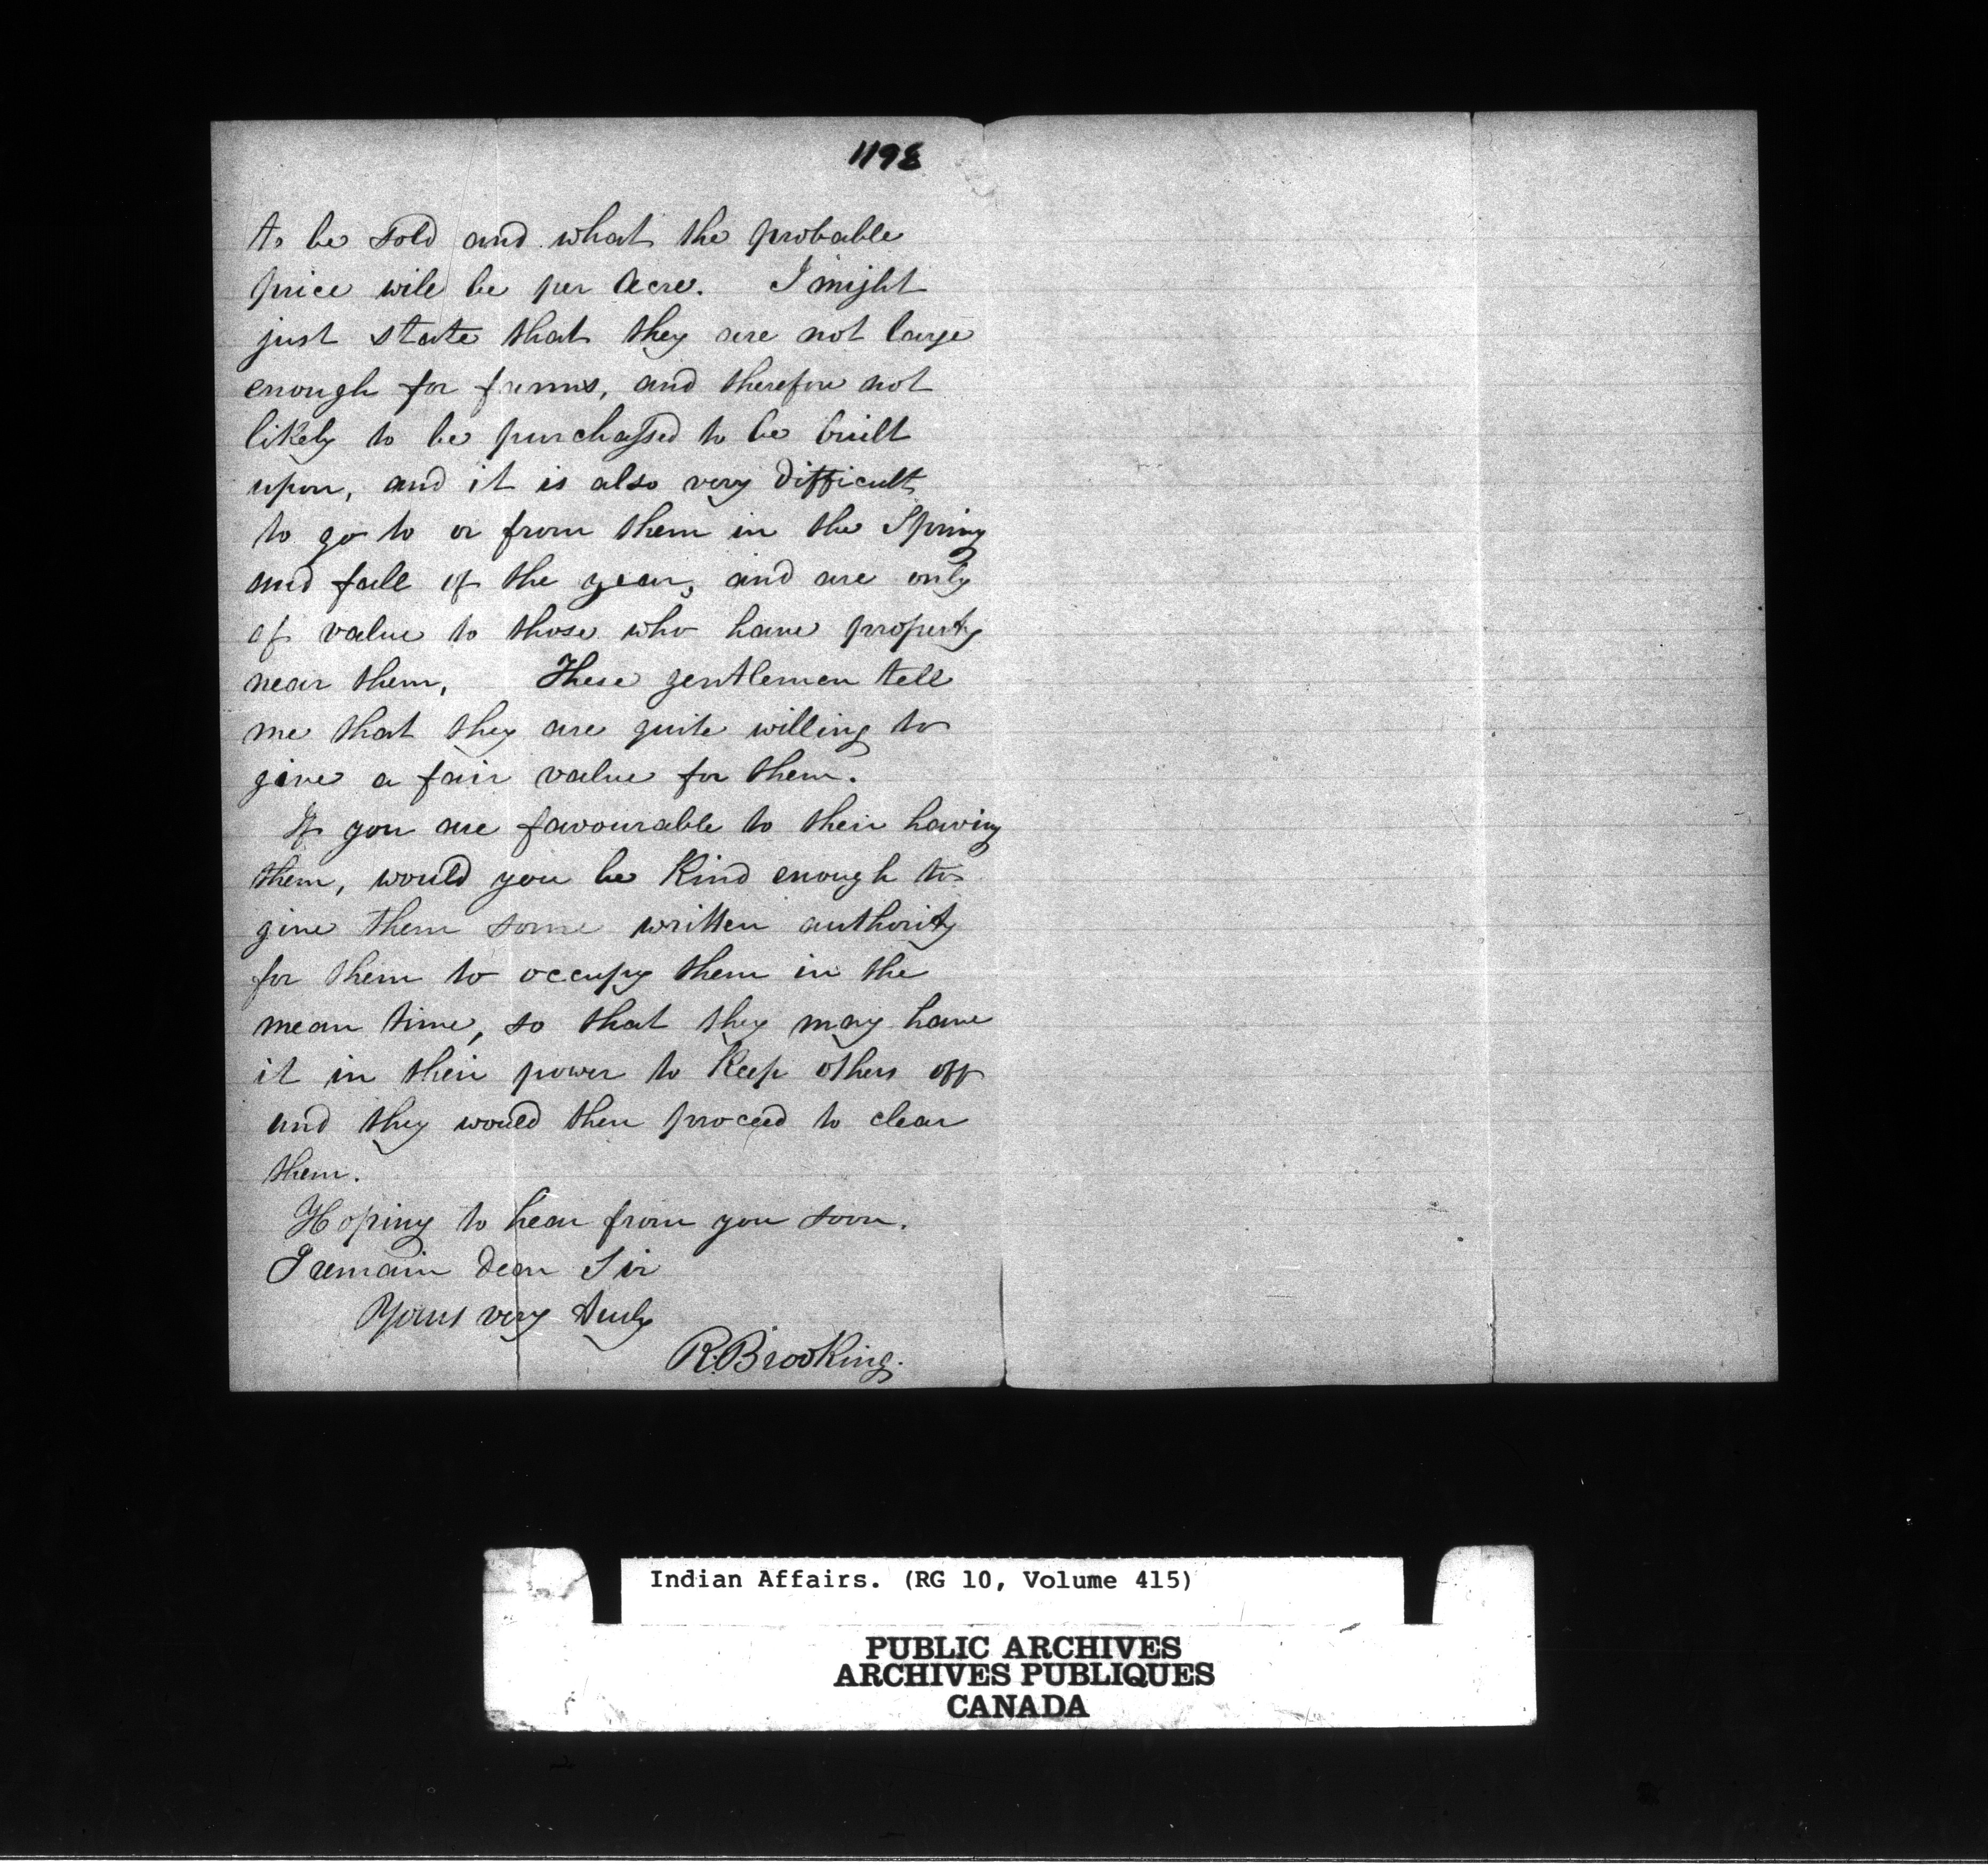 1198
to be sold and what the probable
price will be per Acre. I might
just state that they are not large
enough for farms, and therefore not
likely to be purchassed to be built
upon, and it is also very difficult
to go to or from them in the Spring
and fall of the year, and are only
of value to those who have property
near them, These gentlemen tell
me that they are quite willing to
give a fair value for them.
If you are favourable to their having
them, would you be Kind enough to
give them some written authority
for them to occupy them in the
mean time, so that they may have
it in their power to Keep others off
and they would then proceed to clear
them.
Hoping to hear from you soon.
I remain Dear Sir
Yours very truly
R. Brooking.
Indian Affairs. (RG 10, Volume 415)
PUBLIC ARCHIVES
ARCHIVES PUBLIQUES
CANADA